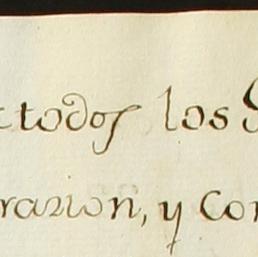 todos los
razion, y Con